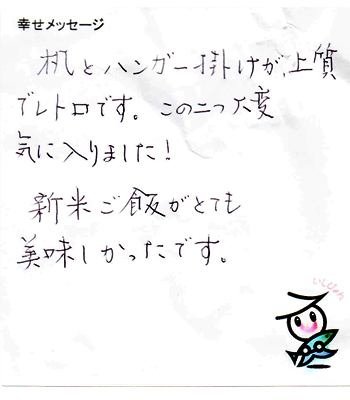 幸せメッセージ
机とハンガー掛けが、上質
でレトロです。この二つ大変
気に入りました！
新米ご飯がとても
美味しかったです。